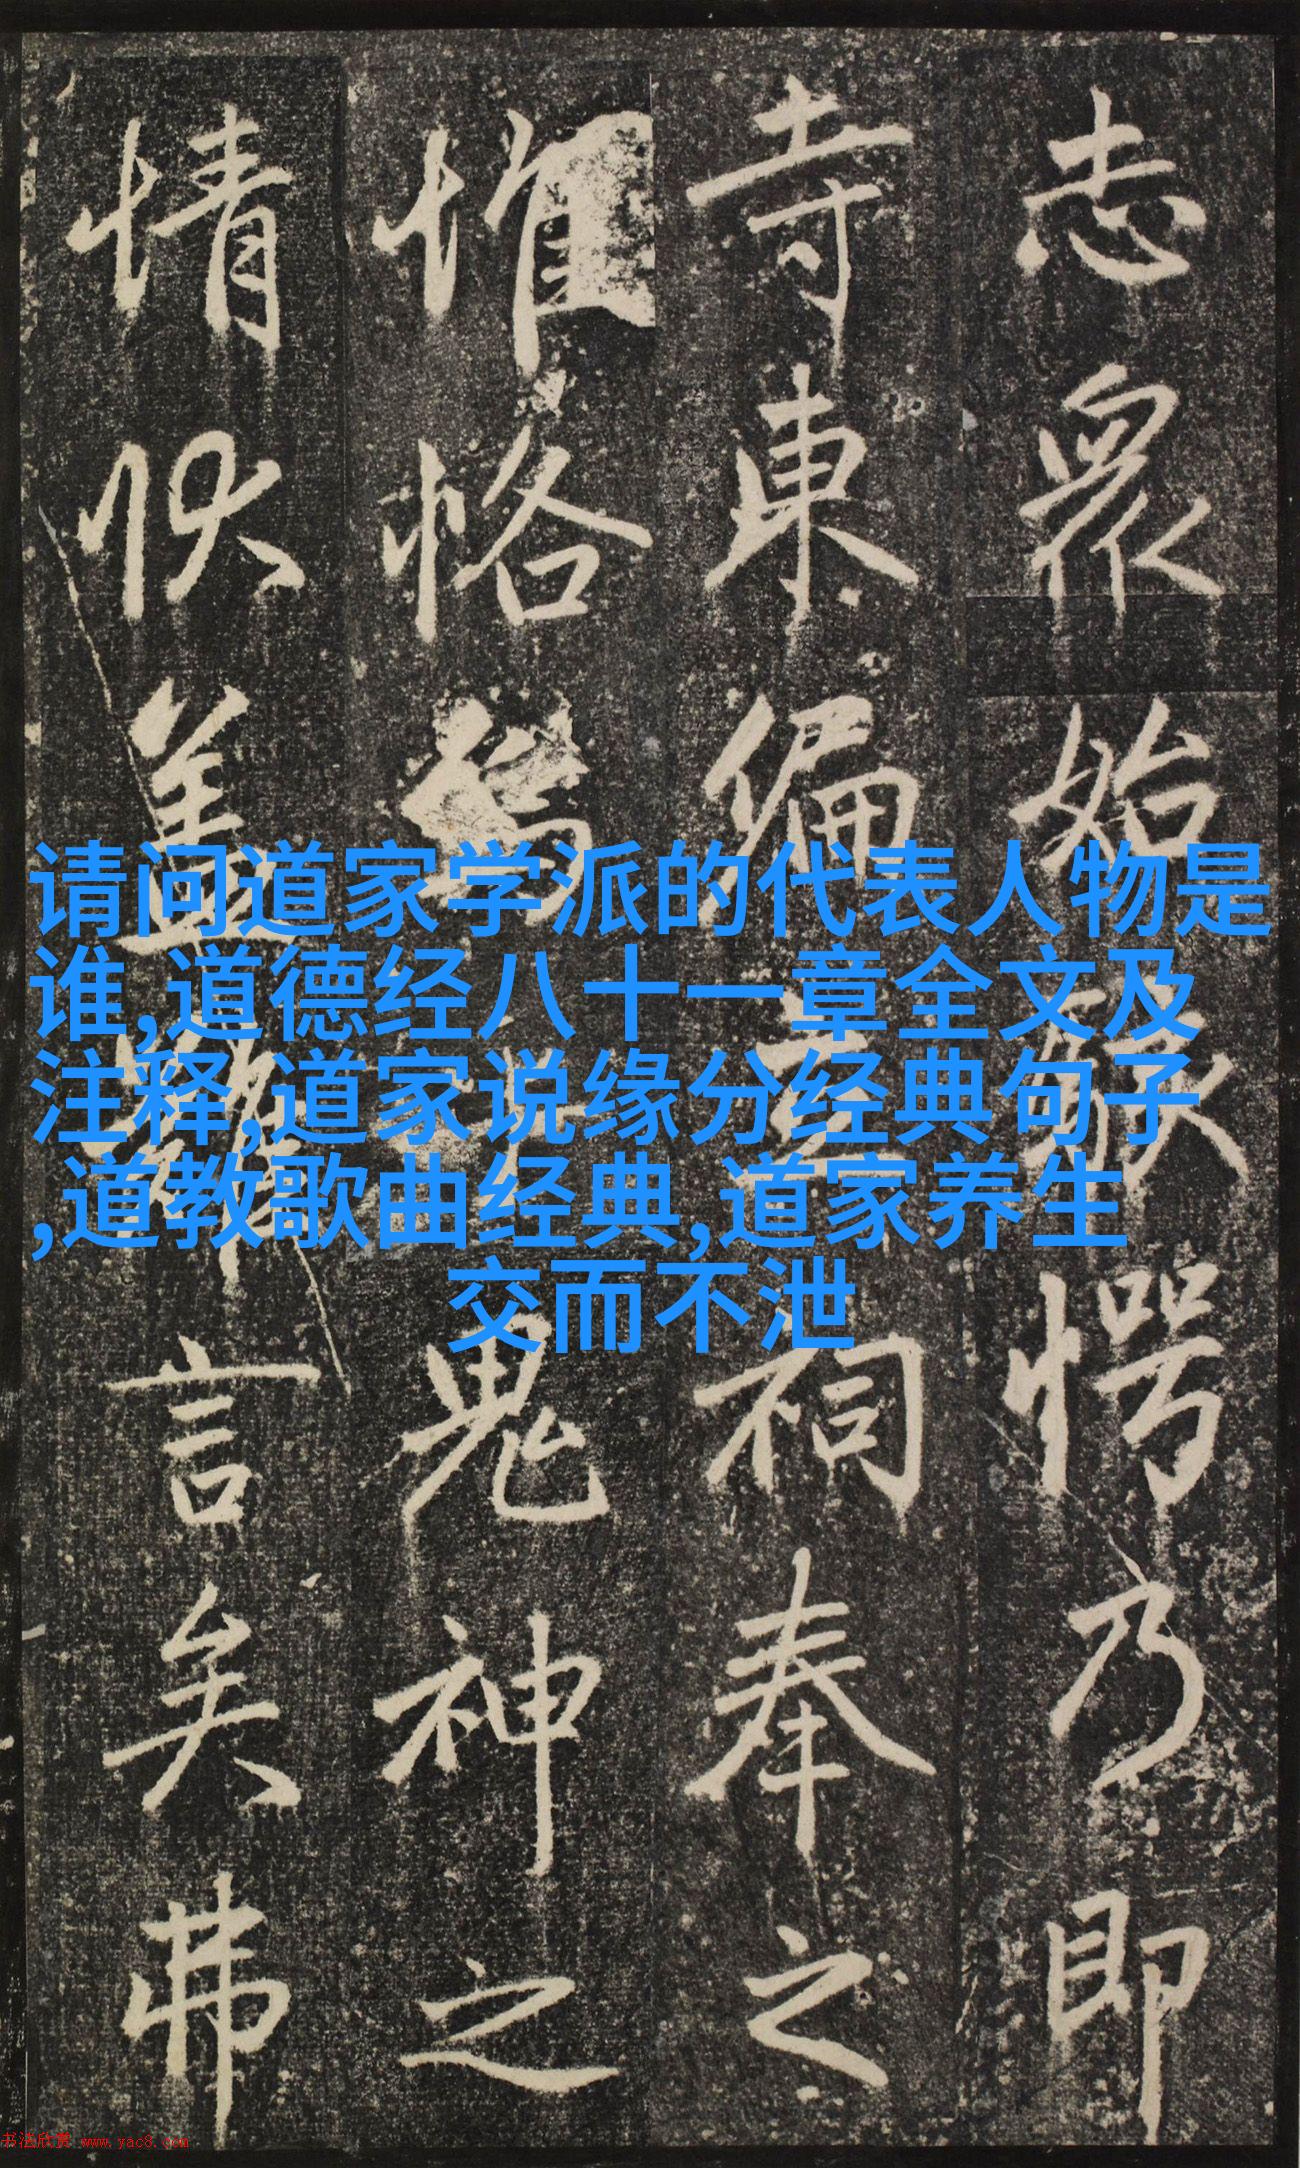 志眾始愕乃即
寺東偏立祠奉之
惟恪焉鬼神之
情狀蓋難言矣弗
请问道家学派的代表人物是
谁,道德经八十一章全文及
注释,道家说缘分经典句子
,道教歌曲经典,道家养生
交而不泄
书法欣赏 www.yac8.com